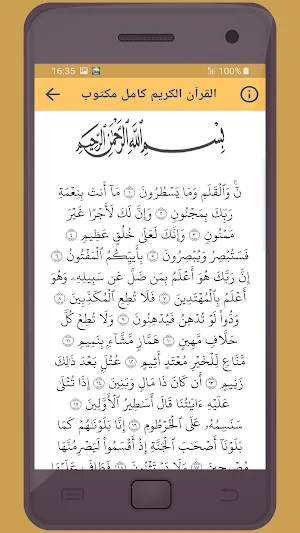 16:35 100%
القرآن الكريم كامل مكتوب
بِسْمِ اللَّهِ الرَّحْمَٰنِ الرَّحِيمِ
نٓ ۚ وَٱلْقَلَمِ وَمَا يَسْطُرُونَ ۝١ مَآ أَنتَ بِنِعْمَةِ
رَبِّكَ بِمَجْنُونٍ ۝٢ وَإِنَّ لَكَ لَأَجْرًا غَيْرَ
مَمْنُونٍ ۝٣ وَإِنَّكَ لَعَلَىٰ خُلُقٍ عَظِيمٍ ۝٤
فَسَتُبْصِرُ وَيُبْصِرُونَ ۝٥ بِأَييِّكُمُ ٱلْمَفْتُونُ ۝٦
إِنَّ رَبَّكَ هُوَ أَعْلَمُ بِمَن ضَلَّ عَن سَبِيلِهِۦ وَهُوَ
أَعْلَمُ بِٱلْمُهْتَدِينَ ۝٧ فَلَا تُطِعِ ٱلْمُكَذِّبِينَ ۝٨
وَدُّوا۟ لَوْ تُدْهِنُ فَيُدْهِنُونَ ۝٩ وَلَا تُطِعْ كُلَّ
حَلَّافٍ مَّهِينٍ ۝١٠ هَمَّازٍ مَّشَّآءٍۭ بِنَمِيمٍ ۝١١
مَّنَّاعٍ لِّلْخَيْرِ مُعْتَدٍ أَثِيمٍ ۝١٢ عُتُلٍّۭ بَعْدَ ذَٰلِكَ
زَنِيمٍ ۝١٣ أَن كَانَ ذَا مَالٍ وَبَنِينَ ۝١٤ إِذَا تُتْلَىٰ
عَلَيْهِ ءَايَٰتُنَا قَالَ أَسَٰطِيرُ ٱلْأَوَّلِينَ ۝١٥
سَنَسِمُهُۥ عَلَى ٱلْخُرْطُومِ ۝١٦ إِنَّا بَلَوْنَٰهُمْ كَمَا
بَلَوْنَآ أَصْحَٰبَ ٱلْجَنَّةِ إِذْ أَقْسَمُوا۟ لَيَصْرِمُنَّهَا
مُصْبِحِينَ ۝١٧ وَلَا يَسْتَثْنُونَ ۝١٨ فَطَافَ عَلَيْهَا